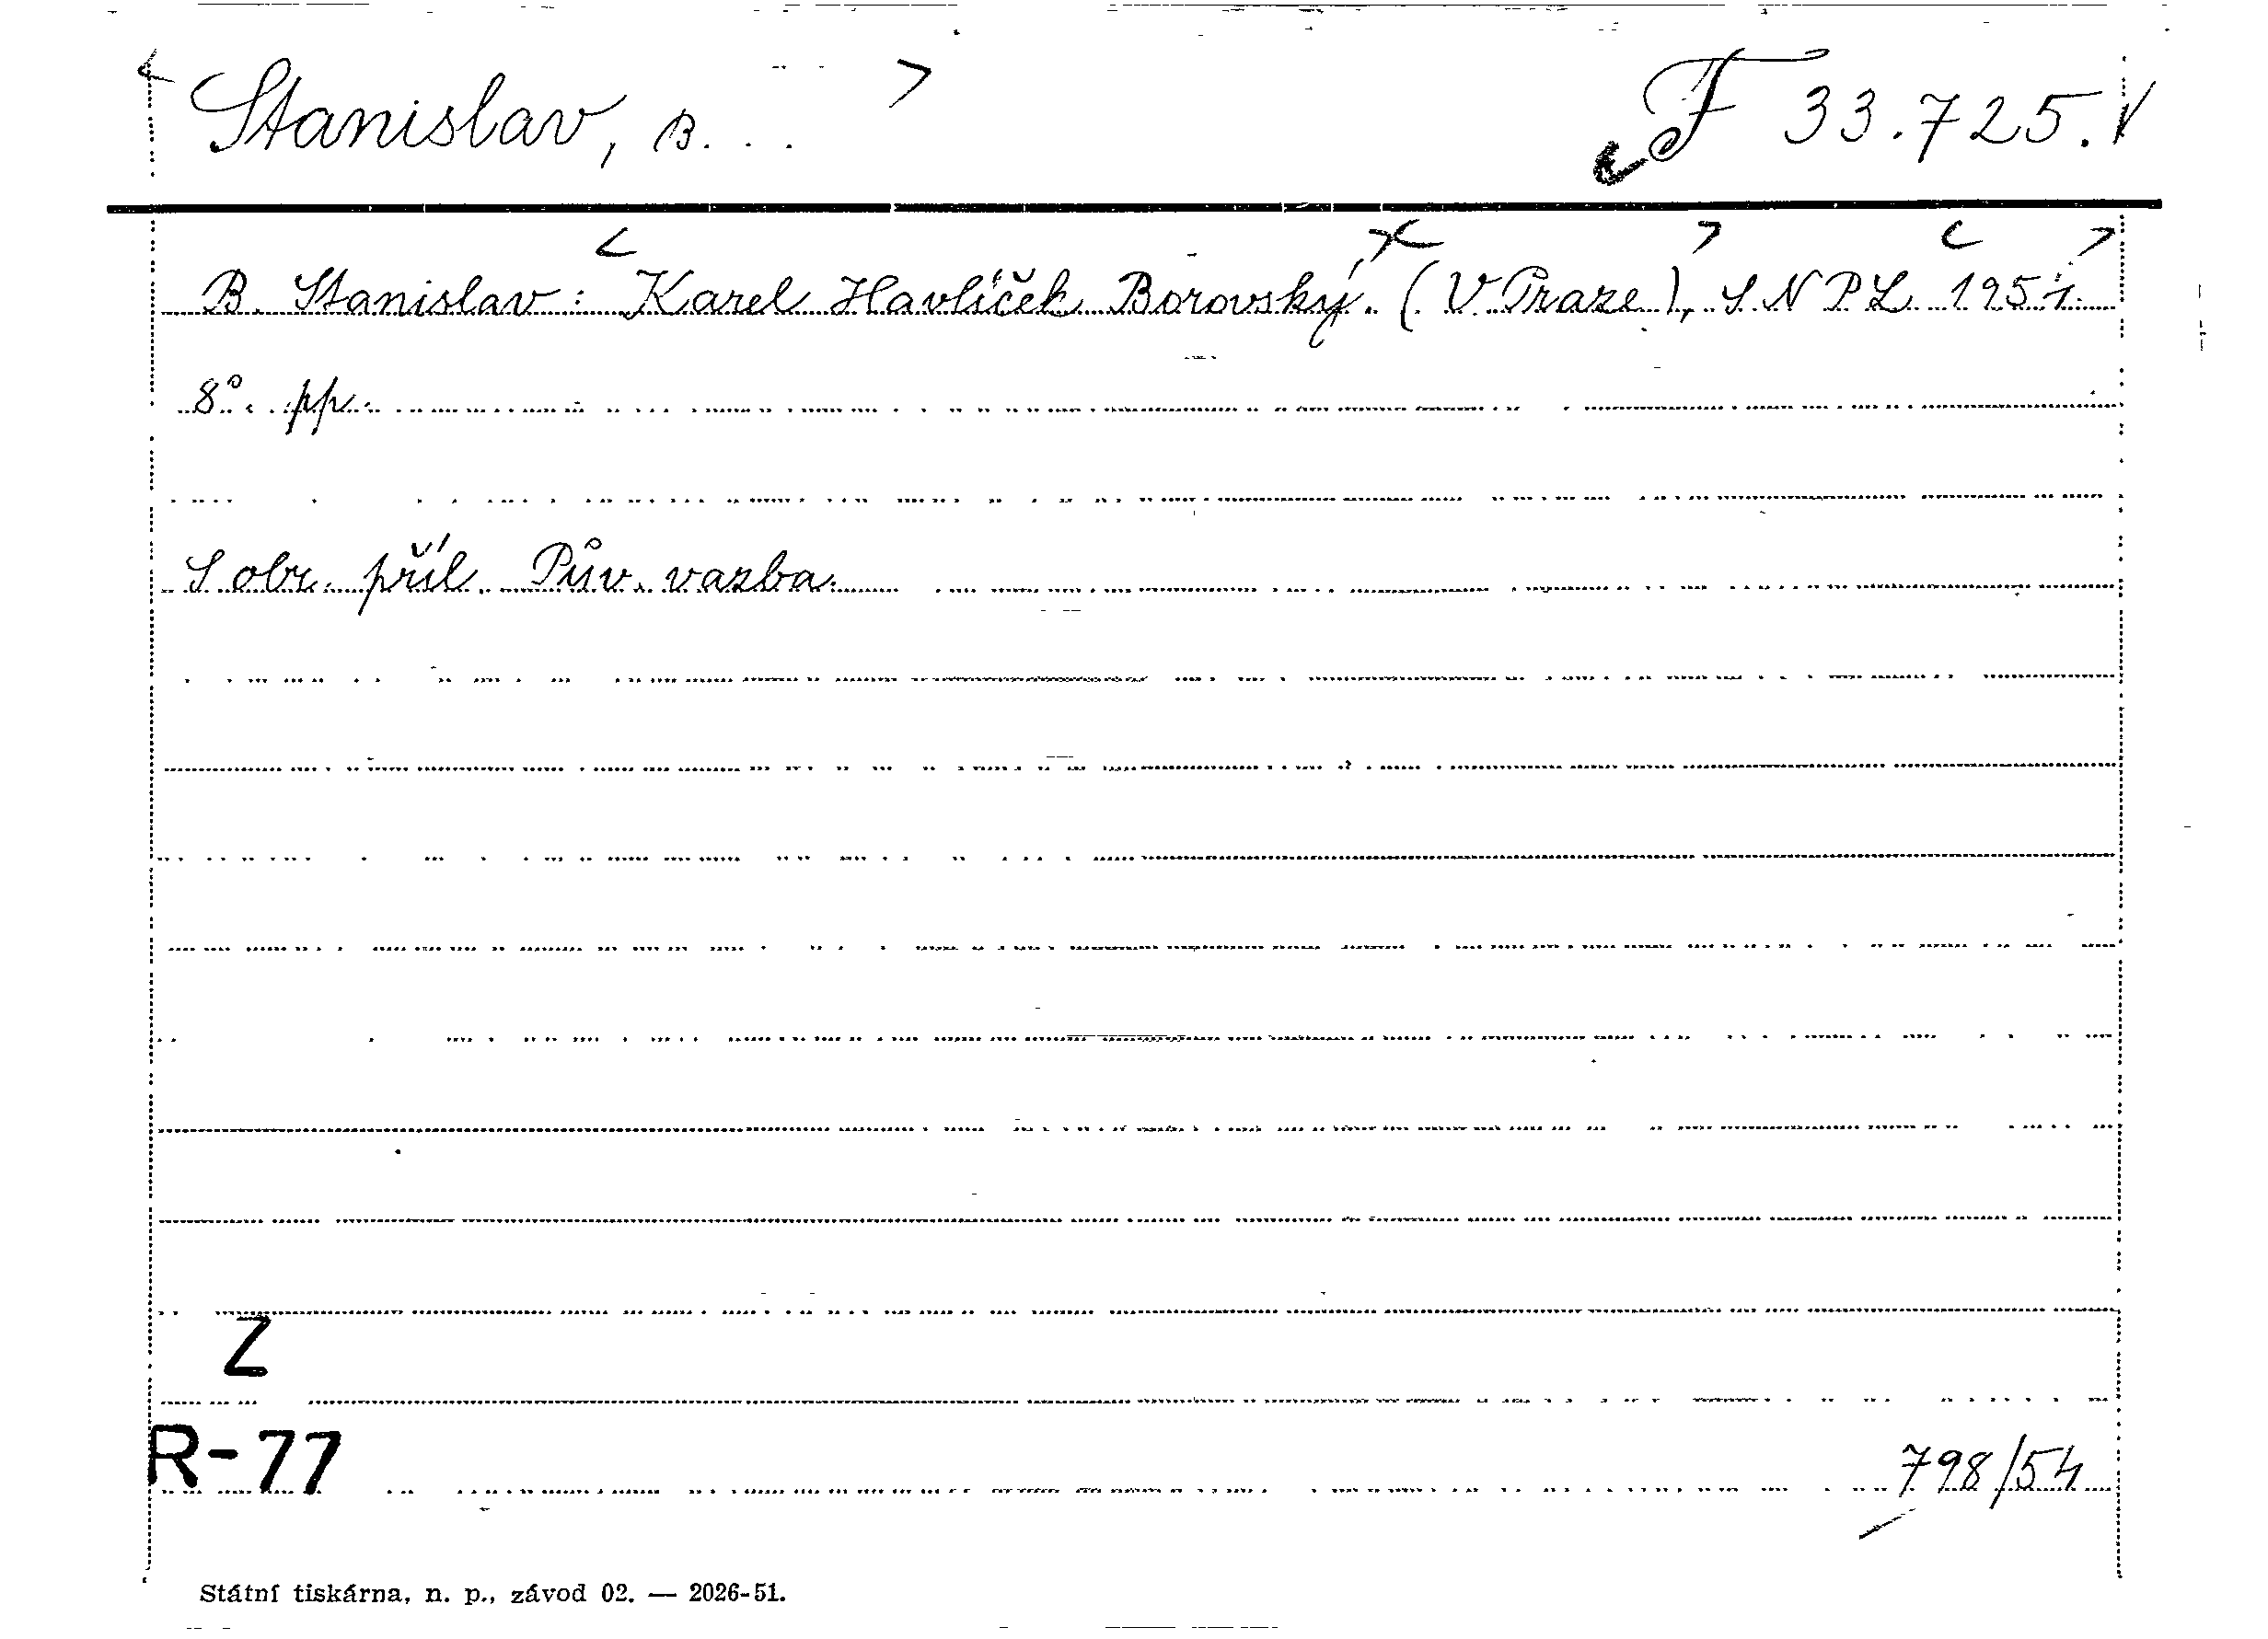 Stanislav, B. . .
F 33.725.
B. Stanislav: Karel Havlíček Borovský. (V Praze), SNPL 1954.
8°. pp.
S obr. příl. Pův. vazba.
Z
R-77
798/54
Státní tiskárna, n. p., závod 02. — 2026-51.